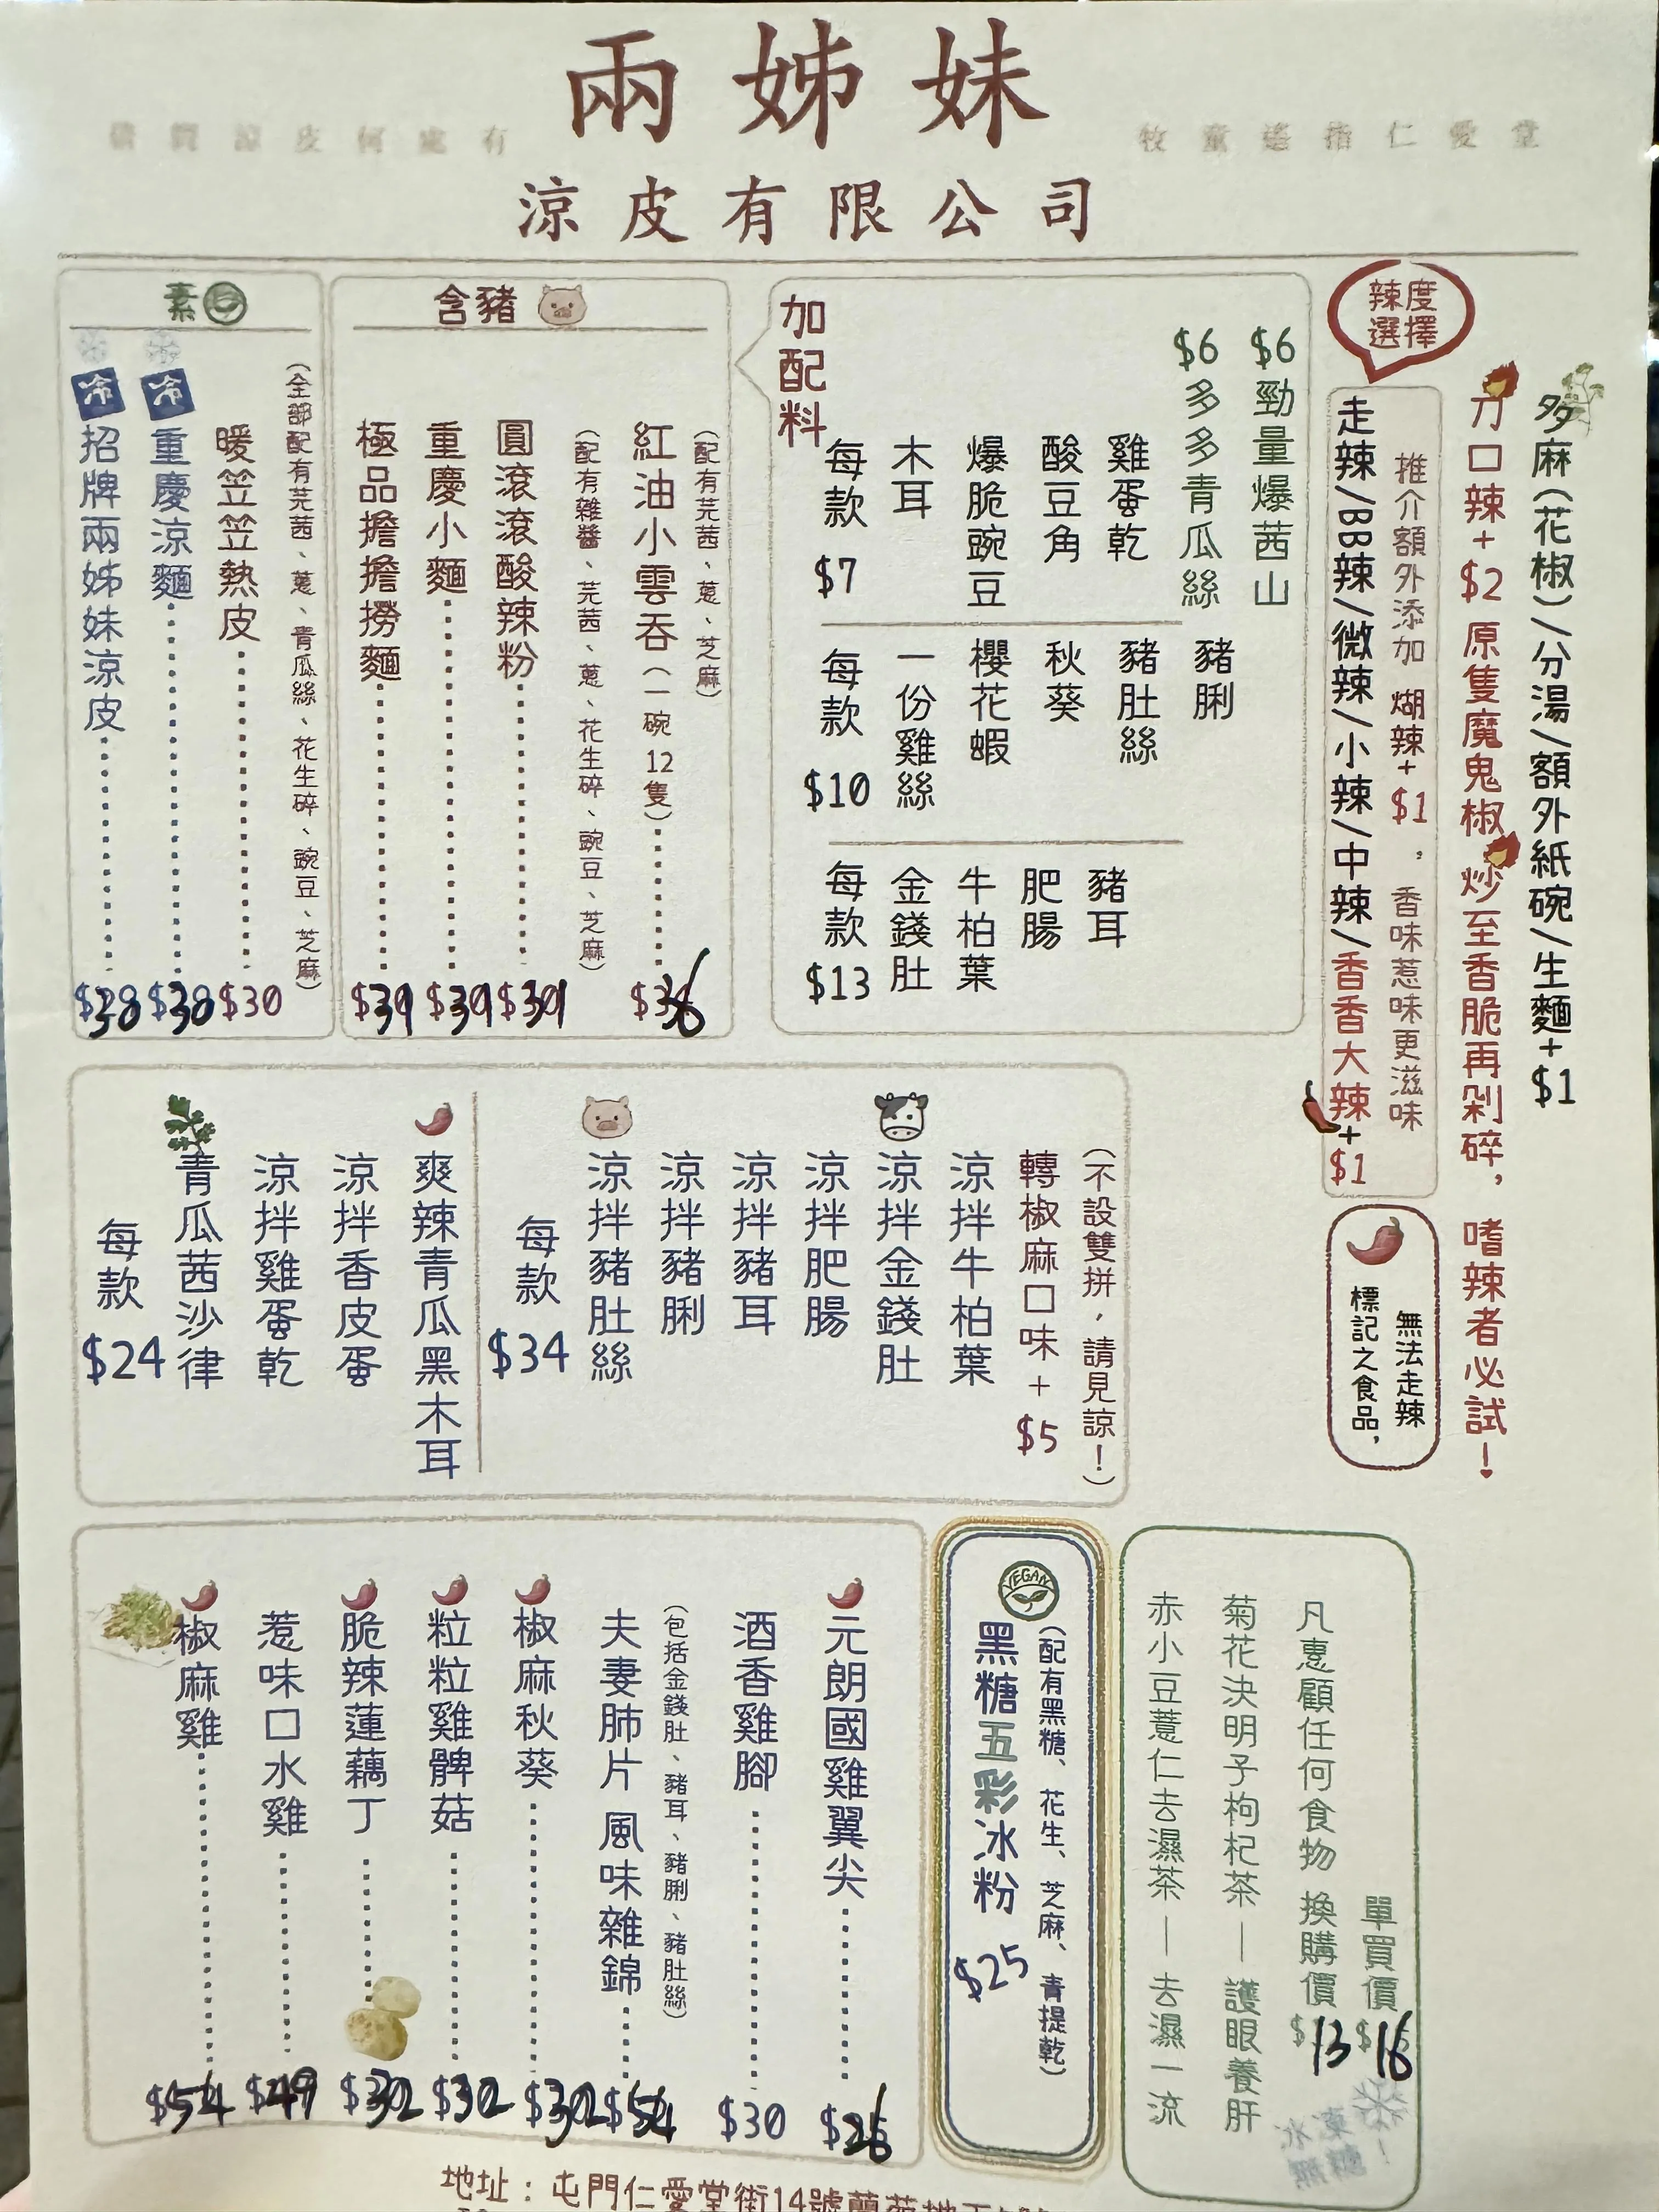 兩姊妹
借問涼皮何處有
牧童遙指仁愛堂
涼皮有限公司
素
冷 招牌兩姊妹涼皮 $38
冷 重慶涼麵 $38
暖笠笠熱皮 $30
(全部配有芫茜、蔥、青瓜絲、花生碎、豌豆、芝麻)
含豬
極品擔擔撈麵 $39
重慶小麵 $39
圓滾滾酸辣粉 $39
(配有雜醬、芫茜、蔥、花生碎、豌豆、芝麻)
紅油小雲吞(一碗12隻) $36
(配有芫茜、蔥、芝麻)
加配料
每款 $7
木耳
爆脆豌豆
酸豆角
雞蛋乾
$6 多多青瓜絲
$6 勁量爆茜山
每款 $10
一份雞絲
櫻花蝦
秋葵
豬肚絲
豬脷
每款 $13
金錢肚
牛柏葉
肥腸
豬耳
辣度選擇
走辣/BB辣/微辣/小辣/中辣/香香大辣+$1
推介額外添加 煳辣+$1,香味惹味更滋味
刀口辣+$2 原隻魔鬼椒炒至香脆再剁碎,嗜辣者必試!
多麻(花椒)/分湯/額外紙碗/生麵+$1
標記之食品,
無法走辣
每款 $24
青瓜茜沙律
涼拌雞蛋乾
涼拌香皮蛋
爽辣青瓜黑木耳
每款 $34
涼拌豬肚絲
涼拌豬脷
涼拌豬耳
涼拌肥腸
涼拌金錢肚
涼拌牛柏葉
轉椒麻口味+$5
(不設雙拼,請見諒!)
椒麻雞 $54
惹味口水雞 $49
脆辣蓮藕丁 $32
粒粒雞髀菇 $32
椒麻秋葵 $32
夫妻肺片 風味雜錦 $54
(包括金錢肚、豬耳、豬脷、豬肚絲)
酒香雞腳 $30
元朗國雞翼尖 $26
VEGAN
黑糖五彩冰粉 $25
(配有黑糖、花生、芝麻、青提乾)
赤小豆薏仁去濕茶—去濕一流
菊花決明子枸杞茶—護眼養肝
凡惠顧任何食物 換購價 $13
單買價 $16
地址:屯門仁愛堂街14號